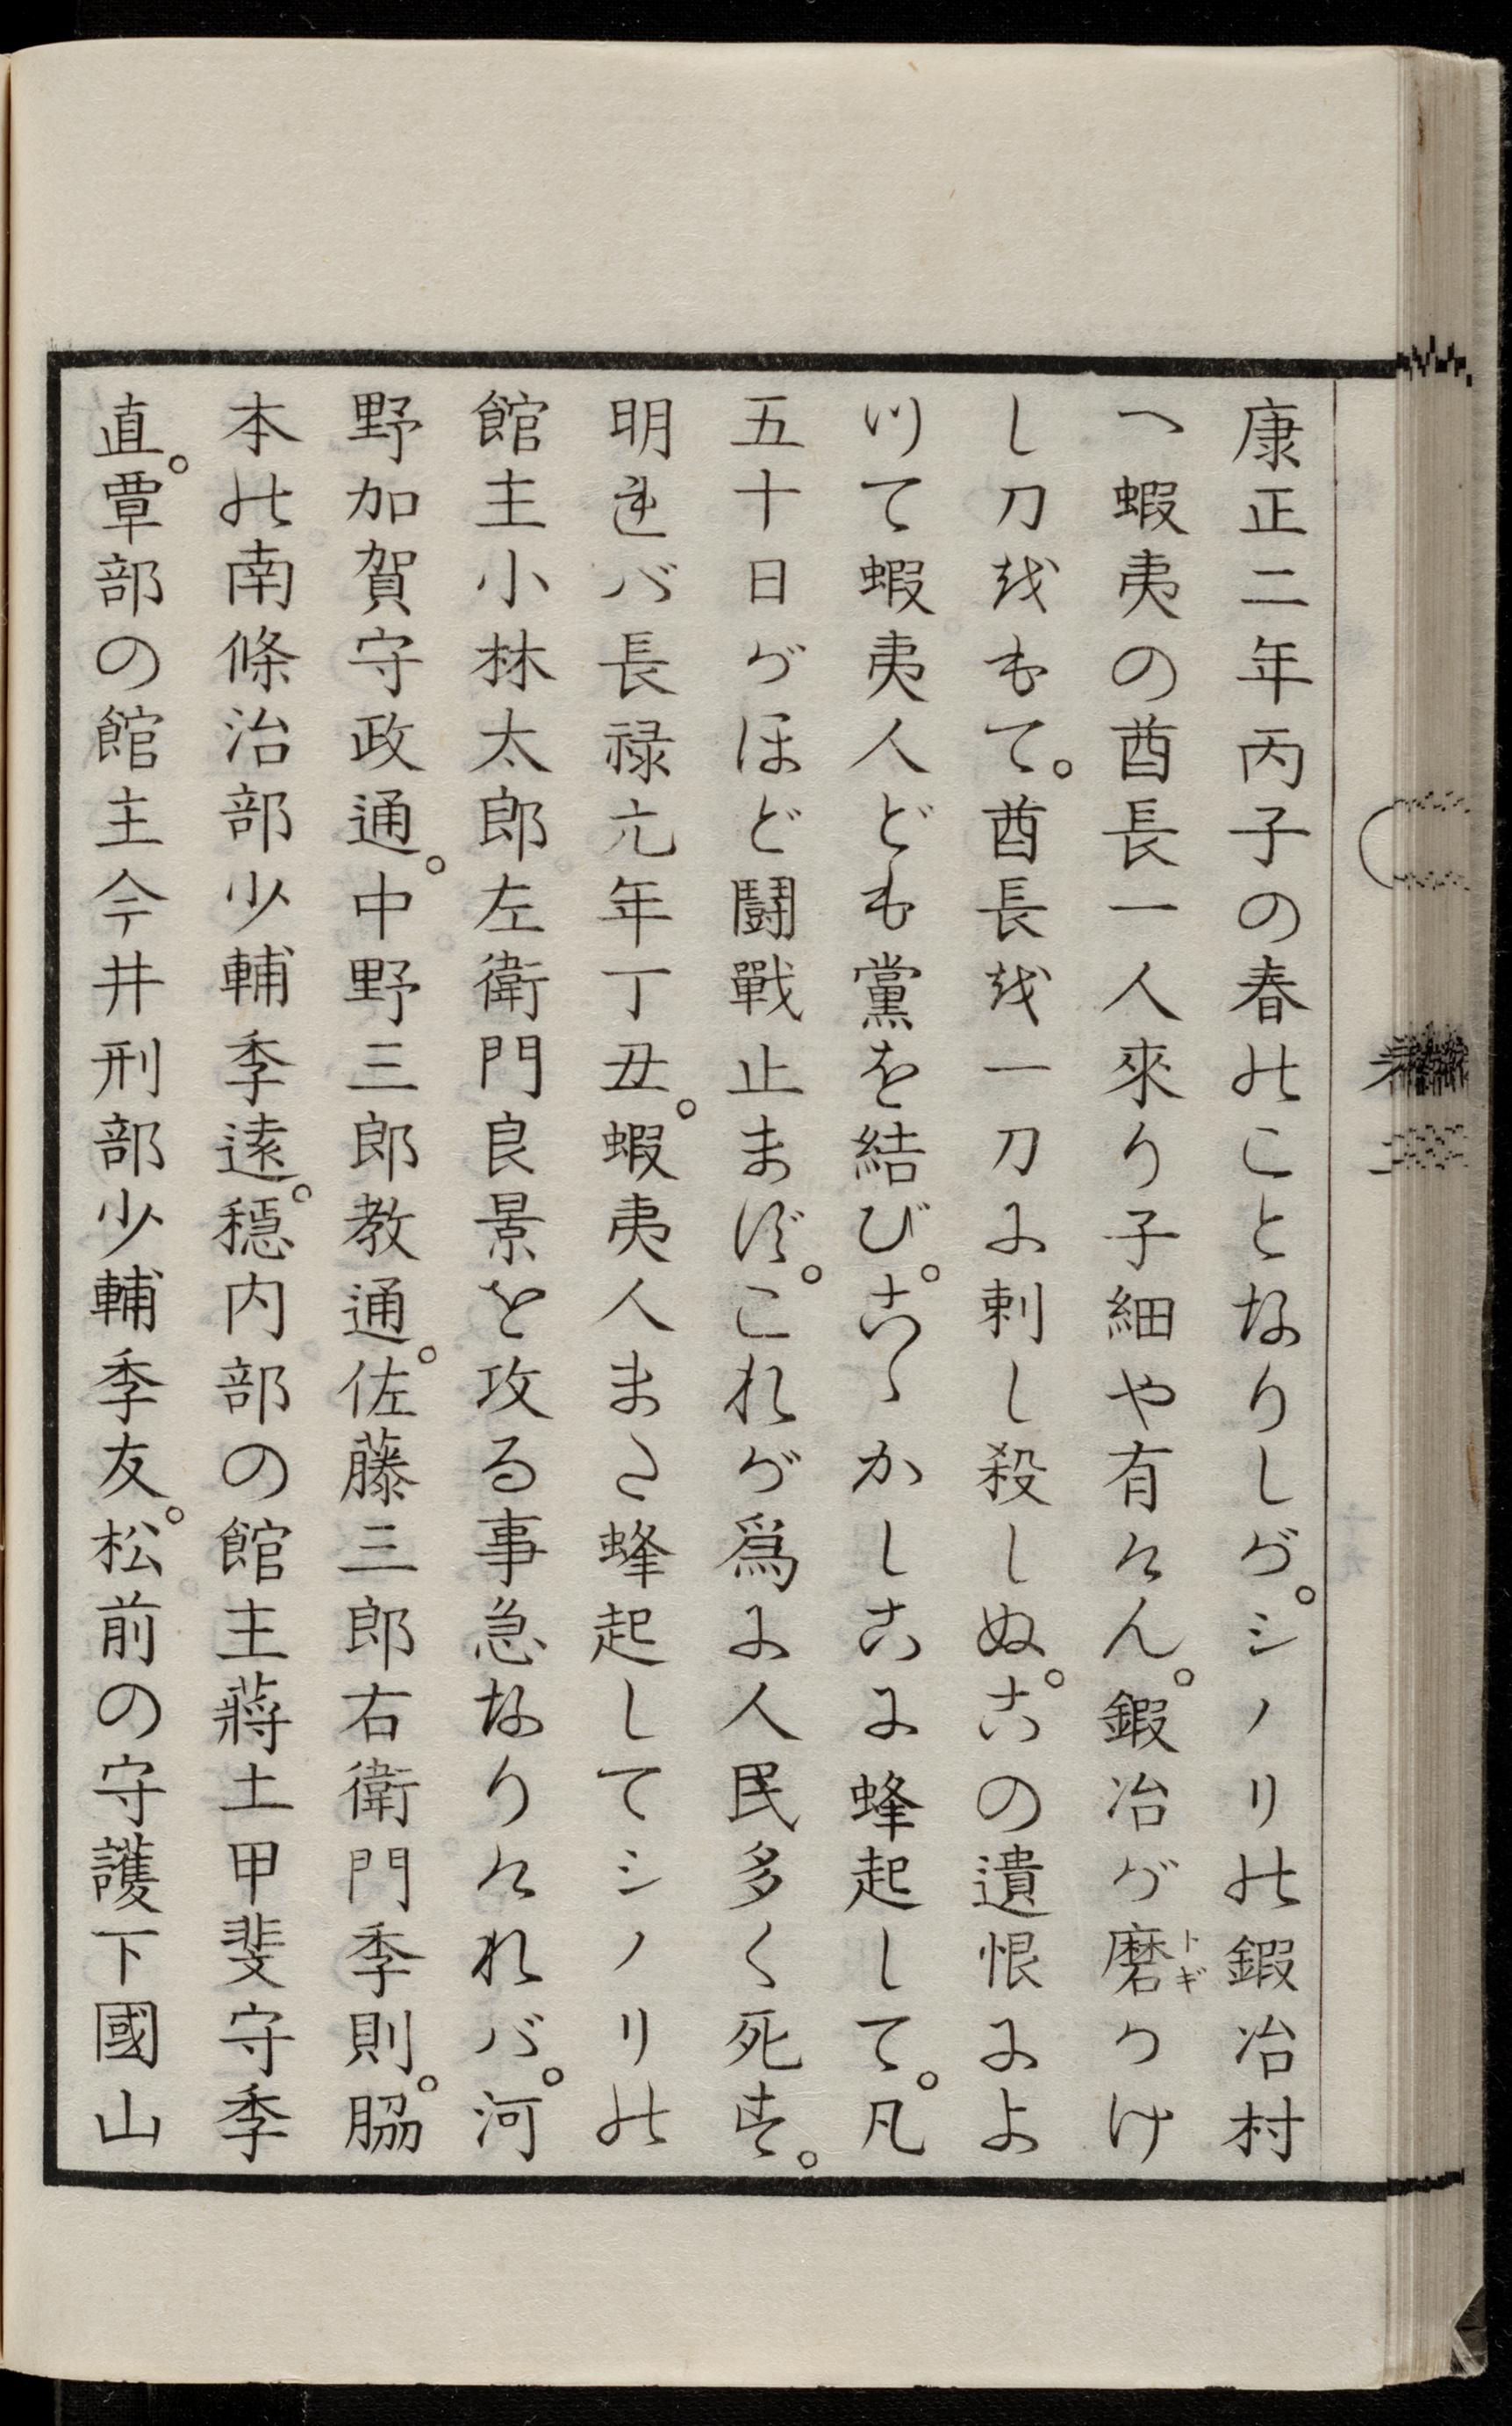 康正二年丙子の春のことなりしが。シノリの鍜冶村
へ蝦夷の酋長一人來り子細や有けん。鍜冶が磨つけ
トギ
し刀をもて。酋長を一刀に刺し殺しぬ。この遺恨によ
つて蝦夷人ども黨を結び。こゝかしこに蜂起して。凡
五十日がほど鬪戰止まず。これが爲に人民多く死す。
明れバ長禄元年丁丑。蝦夷人また蜂起してシノリの
館主小林太郎左衛門良景を攻る事急なりけれバ。河
野加賀守政通。中野三郎教通。佐藤三郎右衛門季則。脇
本の南條治部少輔季遠。穏内部の館主蔣土甲斐守季
直。覃部の館主今井刑部少輔季友。松前の守護下國山